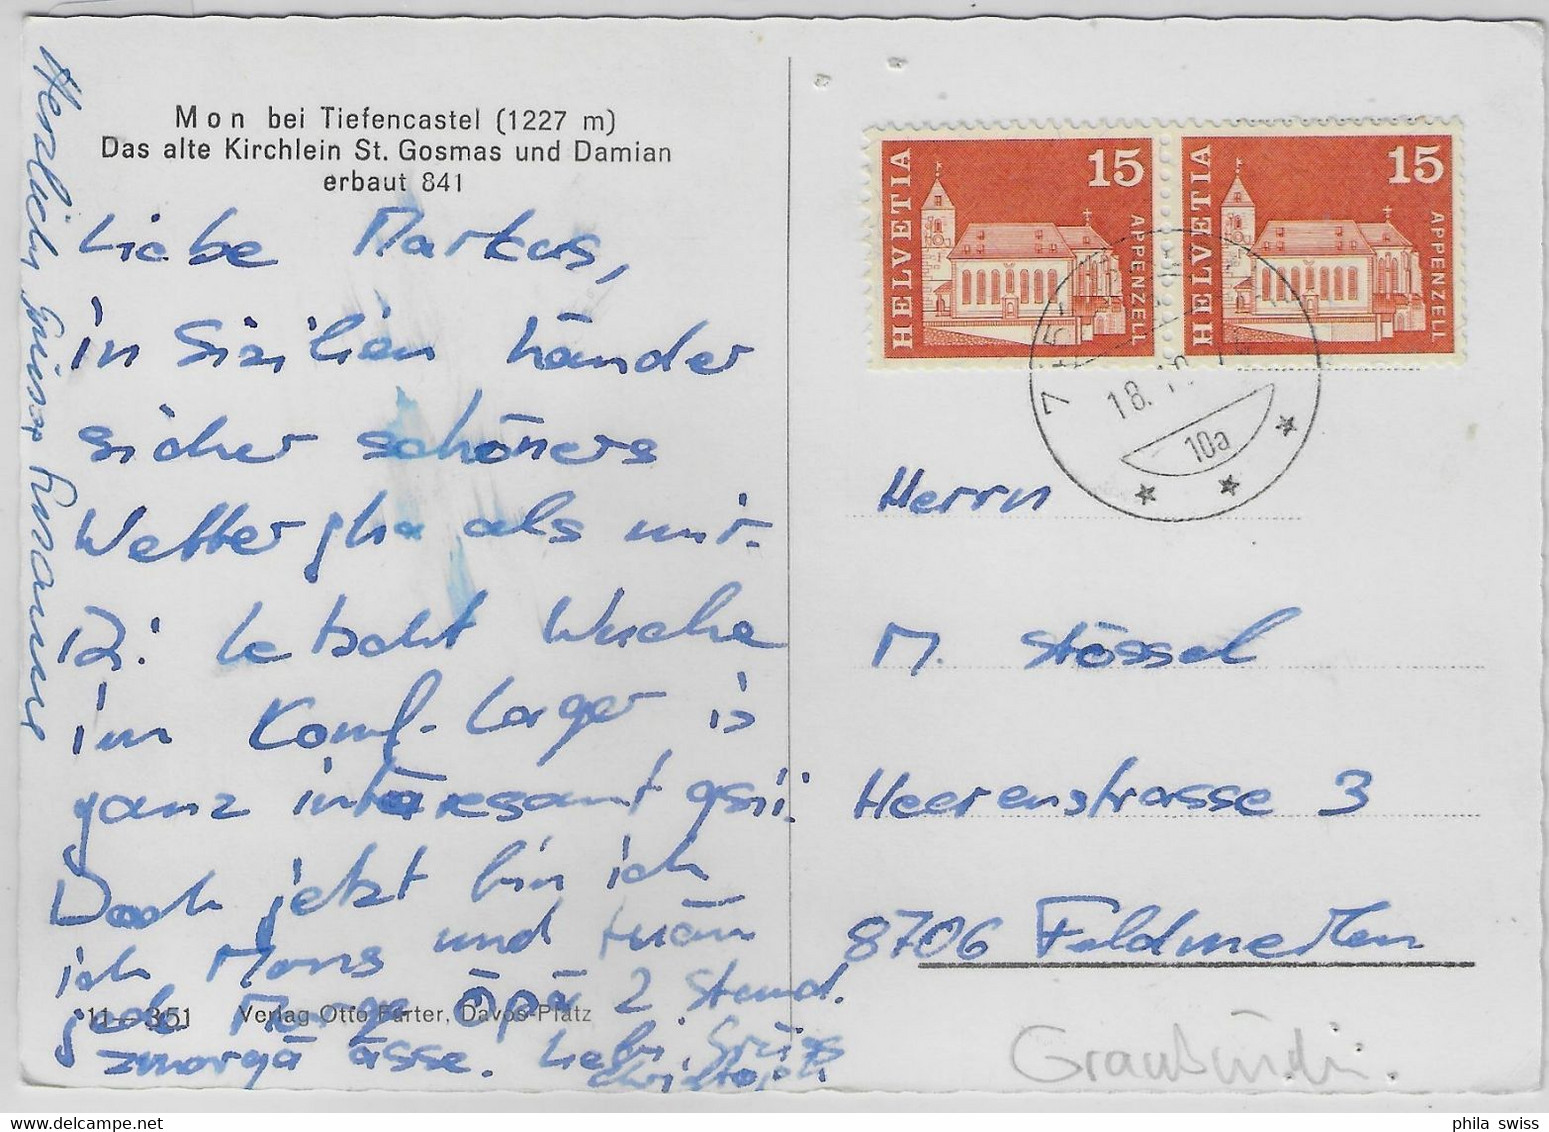 Mon bei Tiefencastel (1227 m)
Das alte Kirchlein St. Gosmas und Damian
erbaut 841
Liebe Markus,
in Sizilien händer
sicher schöners
Wetter gha als mir.
letscht Wuche
im Konf.-Lager is
ganz interessant gsii.
Doch jetzt bin ich
ich Mons und tuän
jede Morge öpä 2 Stund.
zmorgä ässe. Liebi Grüss
Christoph
11-351 Verlag Otto Furter, Davos-Platz
Herzlich grüsst
HELVETIA 15 APPENZELL
HELVETIA 15 APPENZELL
18.
10a
Herrn
M. Stössel
Heerenstrasse 3
8706 Feldmeilen
Graubünden.
phila swiss